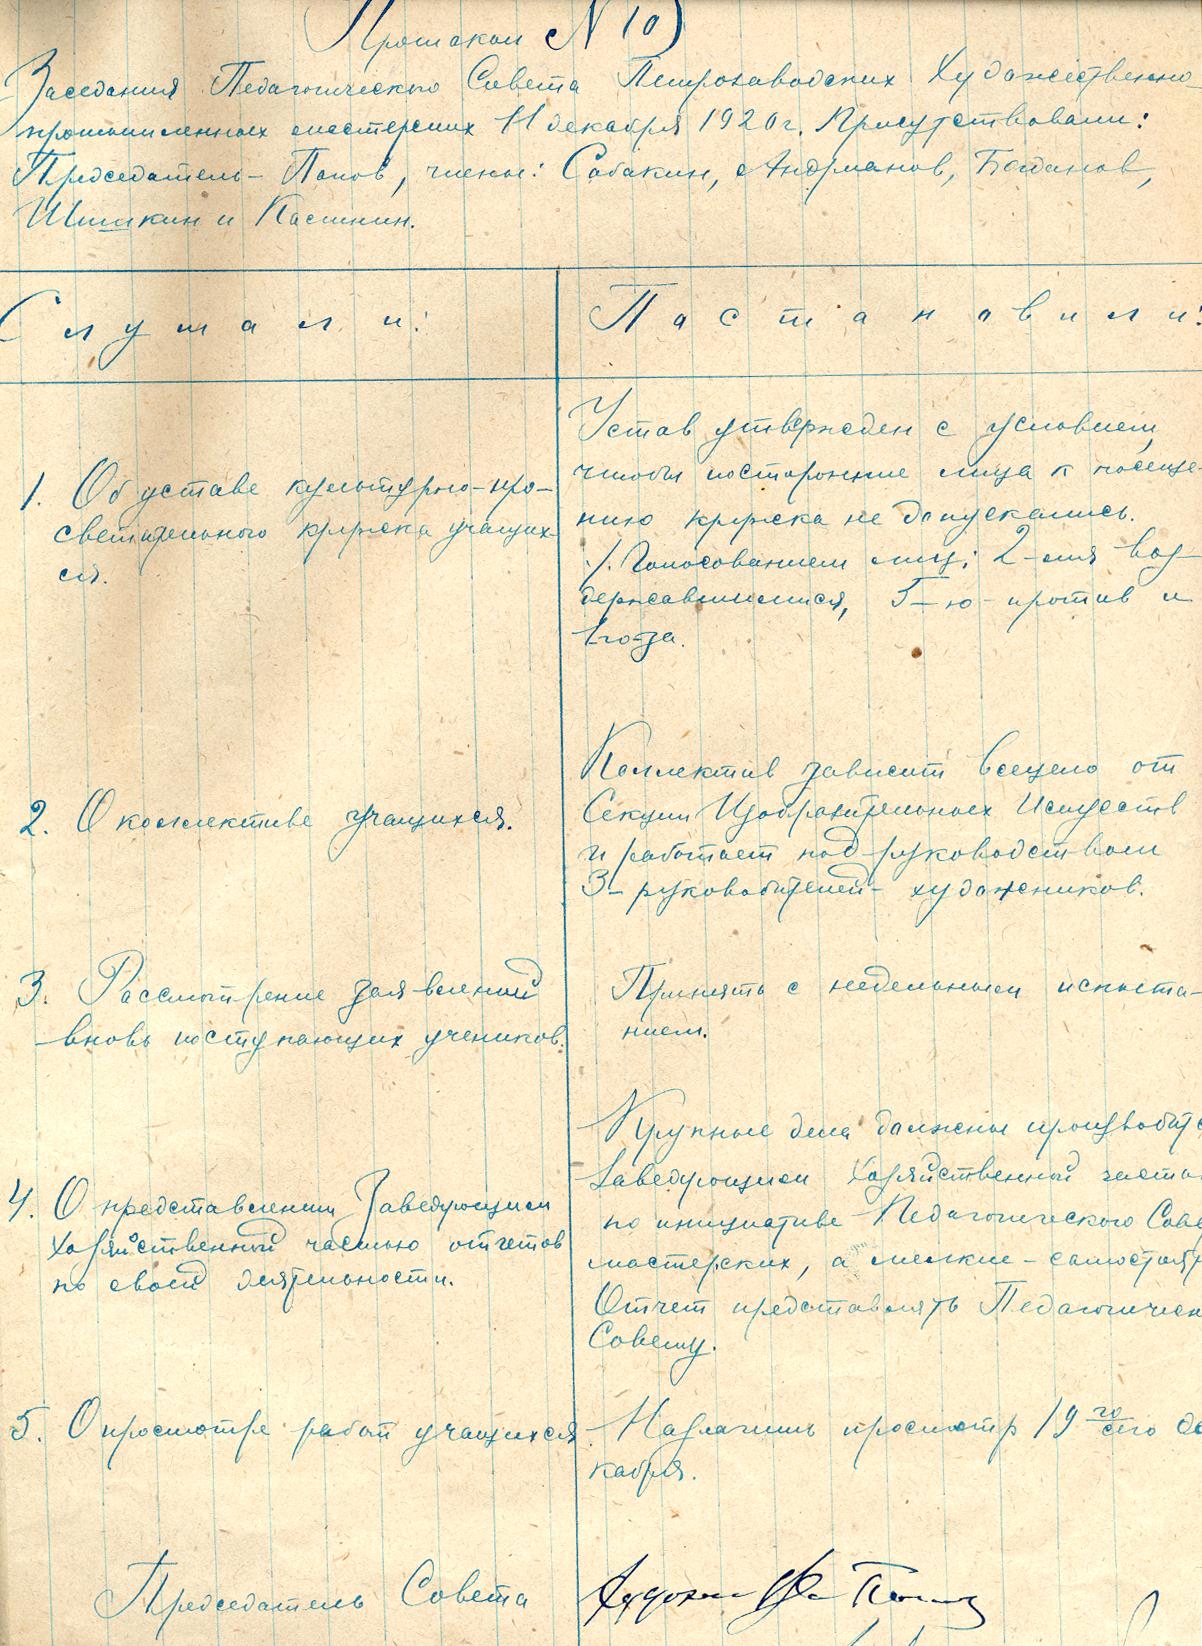 Протокол N 10
Заседания Педагогическго Совета Петрозаводских Художественно-
промышленных мастерских 11 декабря 1920 г. Присутствовали:
Председатель - Попов, члены: Собакин, Андрианов, Богданов,
Шишкин и Касинин.
Слушали:
Постановили:
1. Об уставе культурно-про-
светительного кружка учащих-
ся.
Устав утвержден с условием,
чтобы посторонние лица к посеще-
нию кружка не допускались.
/. Голосованием лиц: 2-мя воз-
державшимися, 5-ю - против и
1-го-за.
2. О коллективе учащихся.
Коллектив зависит всецело от
Секции Изобразительных Искусств
и работает под руководством
3-руководителей-художников.
3. Рассмотрение заявлений
вновь поступающих учеников.
Принять с недельным испыта-
нием.
4. О представлении Заведующим
Хозяйственной частью отчетов
по своей деятельности.
Крупные дела должны производитс
Заведующим Хозяйственной часть
по инициативе Педагогического Сове
мастерских, а мелкие - самостоят
Отчет представлять Педагогичес
Совету.
5. О просмотре работ учащихся.
Назначить просмотр 19го сего де
кабря.
Председатель Совета